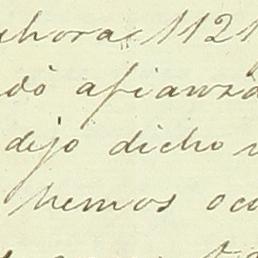 ahora 1121
dó afianza
dejo dicho
hemos oca